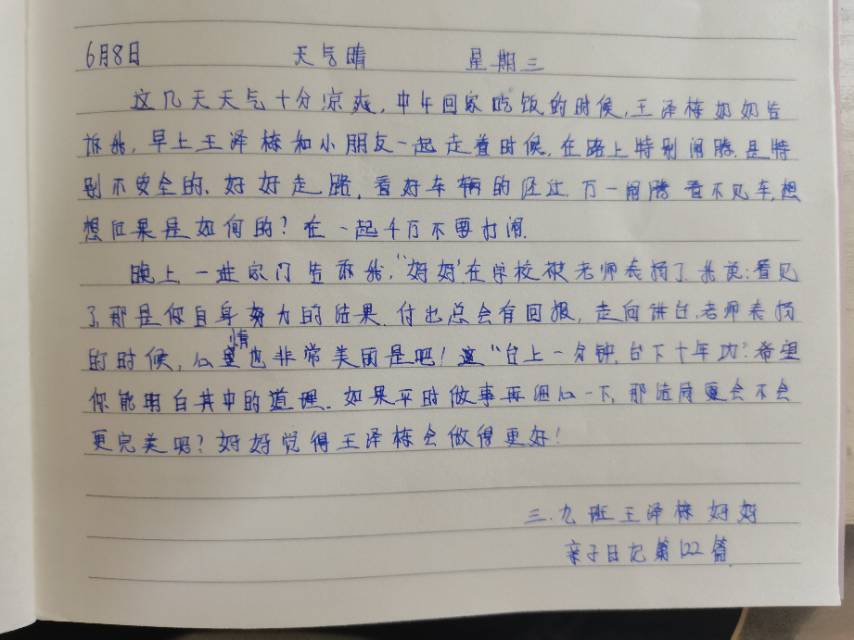 6月8日 天气晴 星期三
这几天天气十分凉爽,中午回家吃饭的时候,王泽栋奶奶告
诉我,早上王泽栋和小朋友一起走着时候,在路上特别闹腾.是特
别不安全的、好好走路,看好车辆的还让万一闹腾看不见车,想
想后果是如何的?在一起千万不要打闹.
晚上一进家门告诉我,“妈妈”在学校被老师表扬了.我说:看见
了那是你自身努力的结果.付出总会有回报,走向讲台,老师表扬
的时候,心情也非常美丽是吧!这“台上一分钟,台下十年功”.希望
你能明白其中的道理.如果平时做事再细心一下,那结局更会不会
更完美呢?妈妈觉得王泽栋会做得更好!
三.九班王泽栋妈妈
亲子日记第122篇